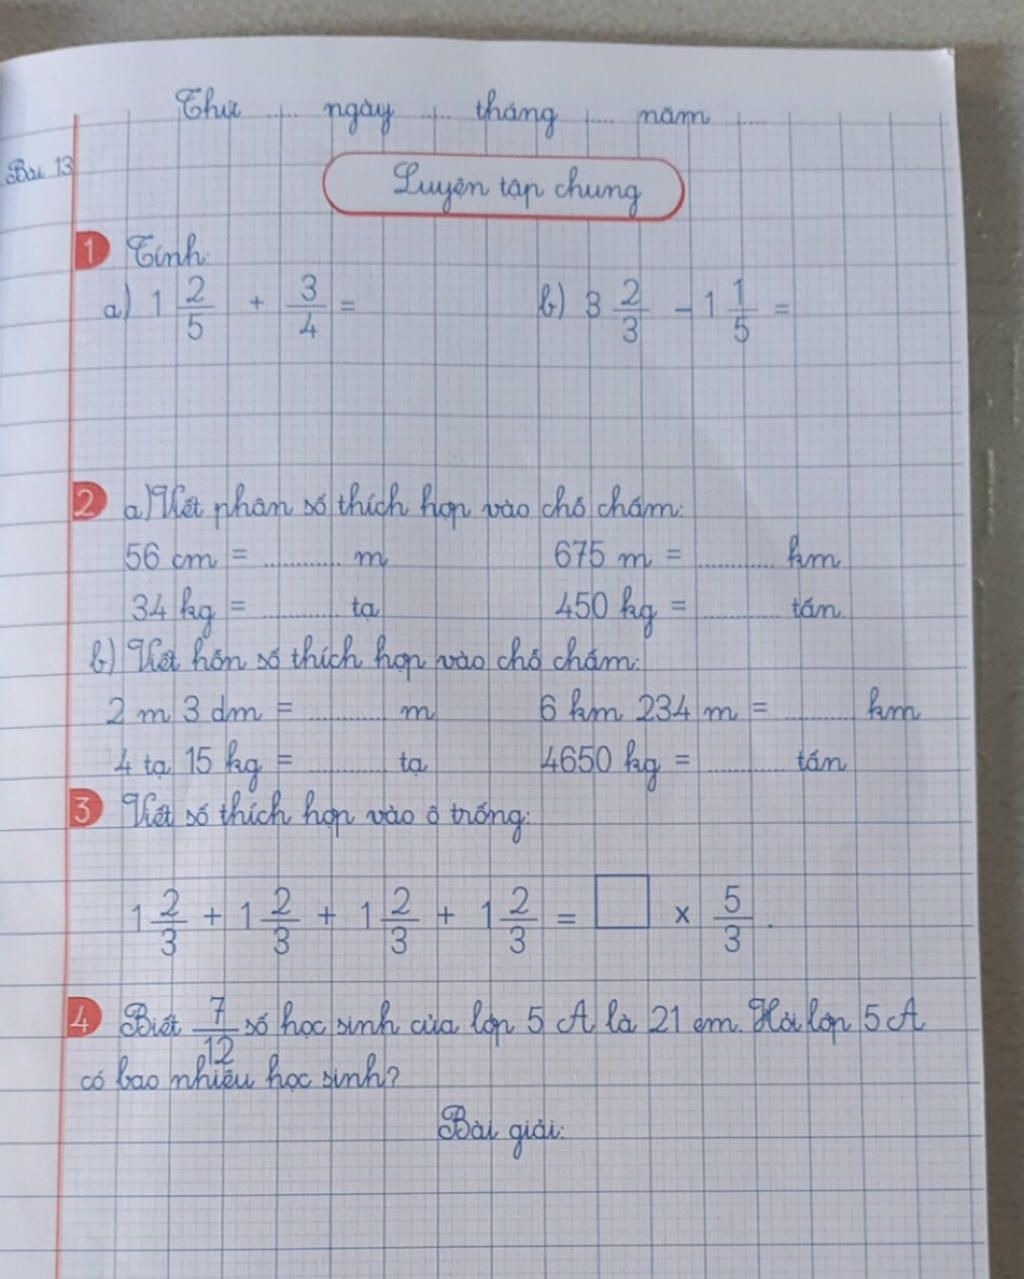 Thứ ..... ngày ..... tháng ..... năm .....
Bài 13
Luyện tập chung
1 Tính:
a) 1 2/5 + 3/4 = b) 3 2/3 - 1 1/5 =
2 a) Viết phân số thích hợp vào chỗ chấm:
56 cm = ............ m 675 m = ............ km
34 kg = ............ tạ 450 kg = ............ tấn
b) Viết hỗn số thích hợp vào chỗ chấm:
2 m 3 dm = ............ m 6 km 234 m = ............ km
4 tạ 15 kg = ............ tạ 4650 kg = ............ tấn
3 Viết số thích hợp vào ô trống:
1 2/3 + 1 2/3 + 1 2/3 + 1 2/3 = □ × 5/3 .
4 Biết 7/12 số học sinh của lớp 5 A là 21 em. Hỏi lớp 5 A
có bao nhiêu học sinh?
Bài giải: